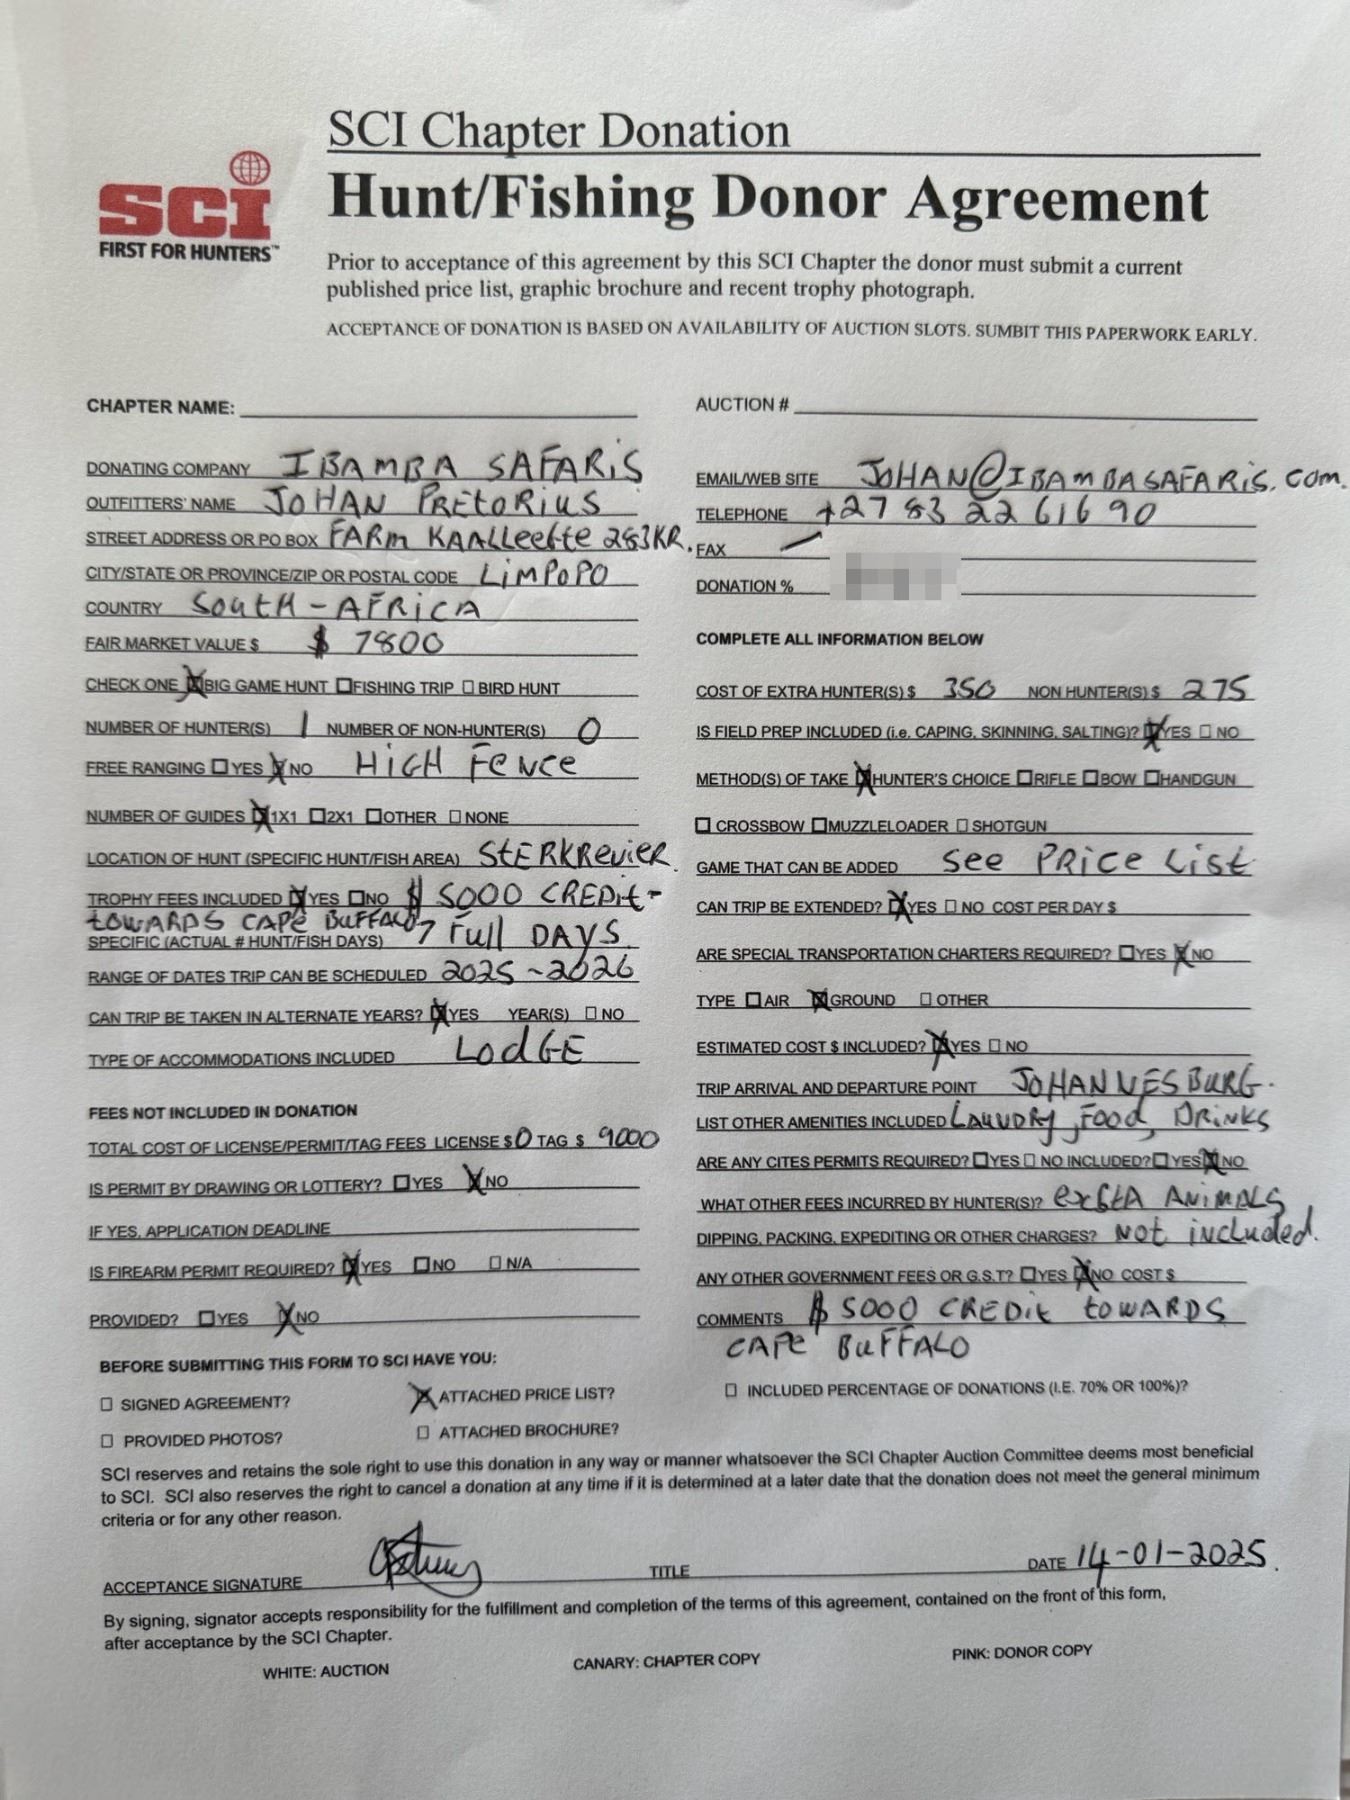 SCI Chapter Donation
SCI
FIRST FOR HUNTERS™
Hunt/Fishing Donor Agreement
Prior to acceptance of this agreement by this SCI Chapter the donor must submit a current
published price list, graphic brochure and recent trophy photograph.
ACCEPTANCE OF DONATION IS BASED ON AVAILABILITY OF AUCTION SLOTS. SUMBIT THIS PAPERWORK EARLY.
CHAPTER NAME:
DONATING COMPANY IBAMBA SAFARIS
OUTFITTERS' NAME JOHAN PRETORIUS
STREET ADDRESS OR PO BOX FARM KAALLEEGTE 283KR.
CITY/STATE OR PROVINCE/ZIP OR POSTAL CODE LIMPOPO
COUNTRY SOUTH-AFRICA
FAIR MARKET VALUE $ $ 7800
CHECK ONE ☒BIG GAME HUNT ☐FISHING TRIP ☐ BIRD HUNT
NUMBER OF HUNTER(S) 1 NUMBER OF NON-HUNTER(S) 0
FREE RANGING ☐YES ☒NO HIGH FENCE
NUMBER OF GUIDES ☒1X1 ☐2X1 ☐OTHER ☐ NONE
LOCATION OF HUNT (SPECIFIC HUNT/FISH AREA) STERKREVIER
TROPHY FEES INCLUDED ☒YES ☐NO $ 5000 CREDIT-
TOWARDS CAPE BUFFALO
SPECIFIC (ACTUAL # HUNT/FISH DAYS) 7 FULL DAYS
RANGE OF DATES TRIP CAN BE SCHEDULED 2025-2026
CAN TRIP BE TAKEN IN ALTERNATE YEARS? ☒YES YEAR(S) ☐ NO
TYPE OF ACCOMMODATIONS INCLUDED LODGE
FEES NOT INCLUDED IN DONATION
TOTAL COST OF LICENSE/PERMIT/TAG FEES LICENSE $ 0 TAG $ 9000
IS PERMIT BY DRAWING OR LOTTERY? ☐YES ☒NO
IF YES, APPLICATION DEADLINE
IS FIREARM PERMIT REQUIRED? ☒YES ☐NO ☐ N/A
PROVIDED? ☐YES ☒NO
AUCTION #
EMAIL/WEB SITE JOHAN@IBAMBASAFARIS.COM
TELEPHONE +27 83 22 61690
FAX
DONATION %
COMPLETE ALL INFORMATION BELOW
COST OF EXTRA HUNTER(S) $ 350 NON HUNTER(S) $ 275
IS FIELD PREP INCLUDED (i.e. CAPING, SKINNING, SALTING)? ☒YES ☐ NO
METHOD(S) OF TAKE ☒HUNTER'S CHOICE ☐RIFLE ☐BOW ☐HANDGUN
☐ CROSSBOW ☐MUZZLELOADER ☐ SHOTGUN
GAME THAT CAN BE ADDED SEE PRICE LIST
CAN TRIP BE EXTENDED? ☒YES ☐ NO COST PER DAY $
ARE SPECIAL TRANSPORTATION CHARTERS REQUIRED? ☐YES ☒NO
TYPE ☐AIR ☒GROUND ☐ OTHER
ESTIMATED COST $ INCLUDED? ☒YES ☐ NO
TRIP ARRIVAL AND DEPARTURE POINT JOHANNESBURG.
LIST OTHER AMENITIES INCLUDED LAUNDRY, FOOD, DRINKS
ARE ANY CITES PERMITS REQUIRED? ☐YES ☐ NO INCLUDED? ☐YES ☒NO
WHAT OTHER FEES INCURRED BY HUNTER(S)? EXSTA ANIMALS
DIPPING, PACKING, EXPEDITING OR OTHER CHARGES? NOT INCLUDED.
ANY OTHER GOVERNMENT FEES OR G.S.T? ☐YES ☒NO COST $
COMMENTS $ 5000 CREDIT TOWARDS
CAPE BUFFALO
BEFORE SUBMITTING THIS FORM TO SCI HAVE YOU:
☐ SIGNED AGREEMENT? ☒ ATTACHED PRICE LIST? ☐ INCLUDED PERCENTAGE OF DONATIONS (I.E. 70% OR 100%)?
☐ PROVIDED PHOTOS? ☐ ATTACHED BROCHURE?
SCI reserves and retains the sole right to use this donation in any way or manner whatsoever the SCI Chapter Auction Committee deems most beneficial
to SCI. SCI also reserves the right to cancel a donation at any time if it is determined at a later date that the donation does not meet the general minimum
criteria or for any other reason.
ACCEPTANCE SIGNATURE TITLE DATE 14-01-2025.
By signing, signator accepts responsibility for the fulfillment and completion of the terms of this agreement, contained on the front of this form,
after acceptance by the SCI Chapter.
WHITE: AUCTION CANARY: CHAPTER COPY PINK: DONOR COPY